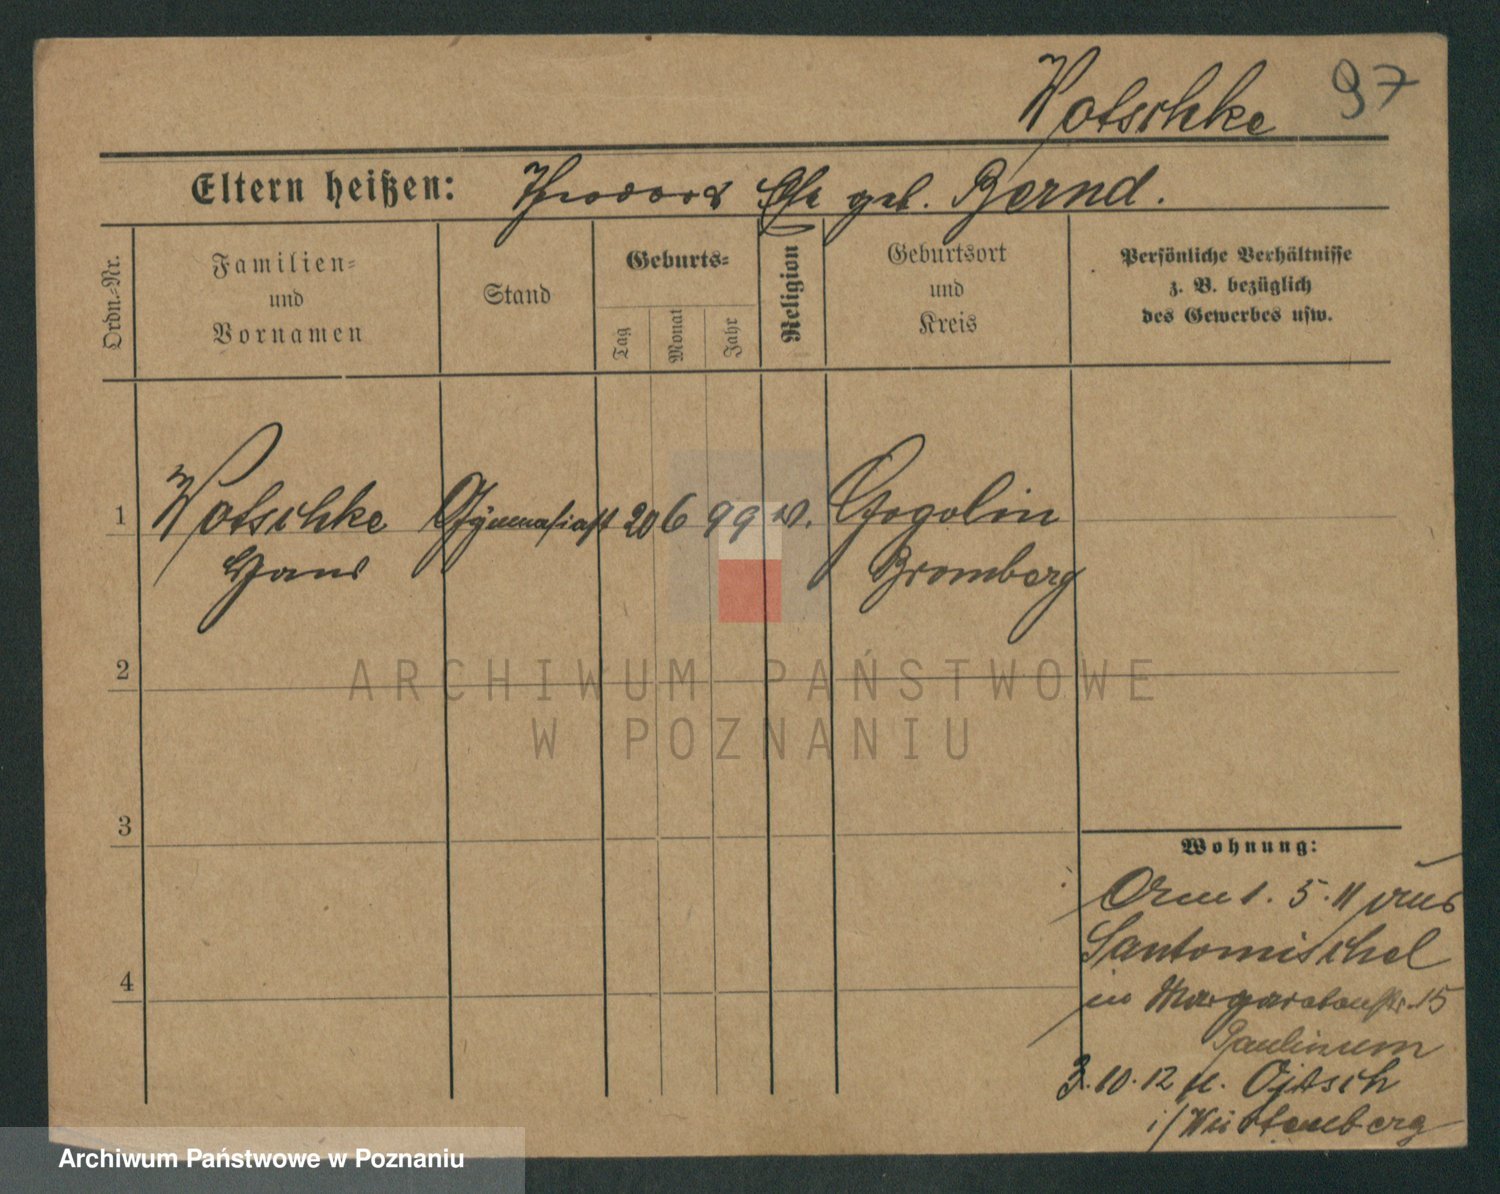 Wotschke 97
Eltern heißen: Theodor & Else geb. Bernd.
Ordn.-Nr.
Familien-
und
Vornamen
Stand
Geburts-
Tag
Monat
Jahr
Religion
Geburtsort
und
Kreis
Persönliche Verhältnisse
z. B. bezüglich
des Gewerbes usw.
1 Wotschke Gymnasiast 20 6 99 ev. Gogolin
Hans Bromberg
2
ARCHIWUM PAŃSTWOWE
W POZNANIU
3
Wohnung:
Am 1. 5. 11 aus
Santomischel
in Margaretenstr. 15
Paulinum
4
3. 10. 12 n.
i/Würtemberg
Archiwum Państwowe w Poznaniu